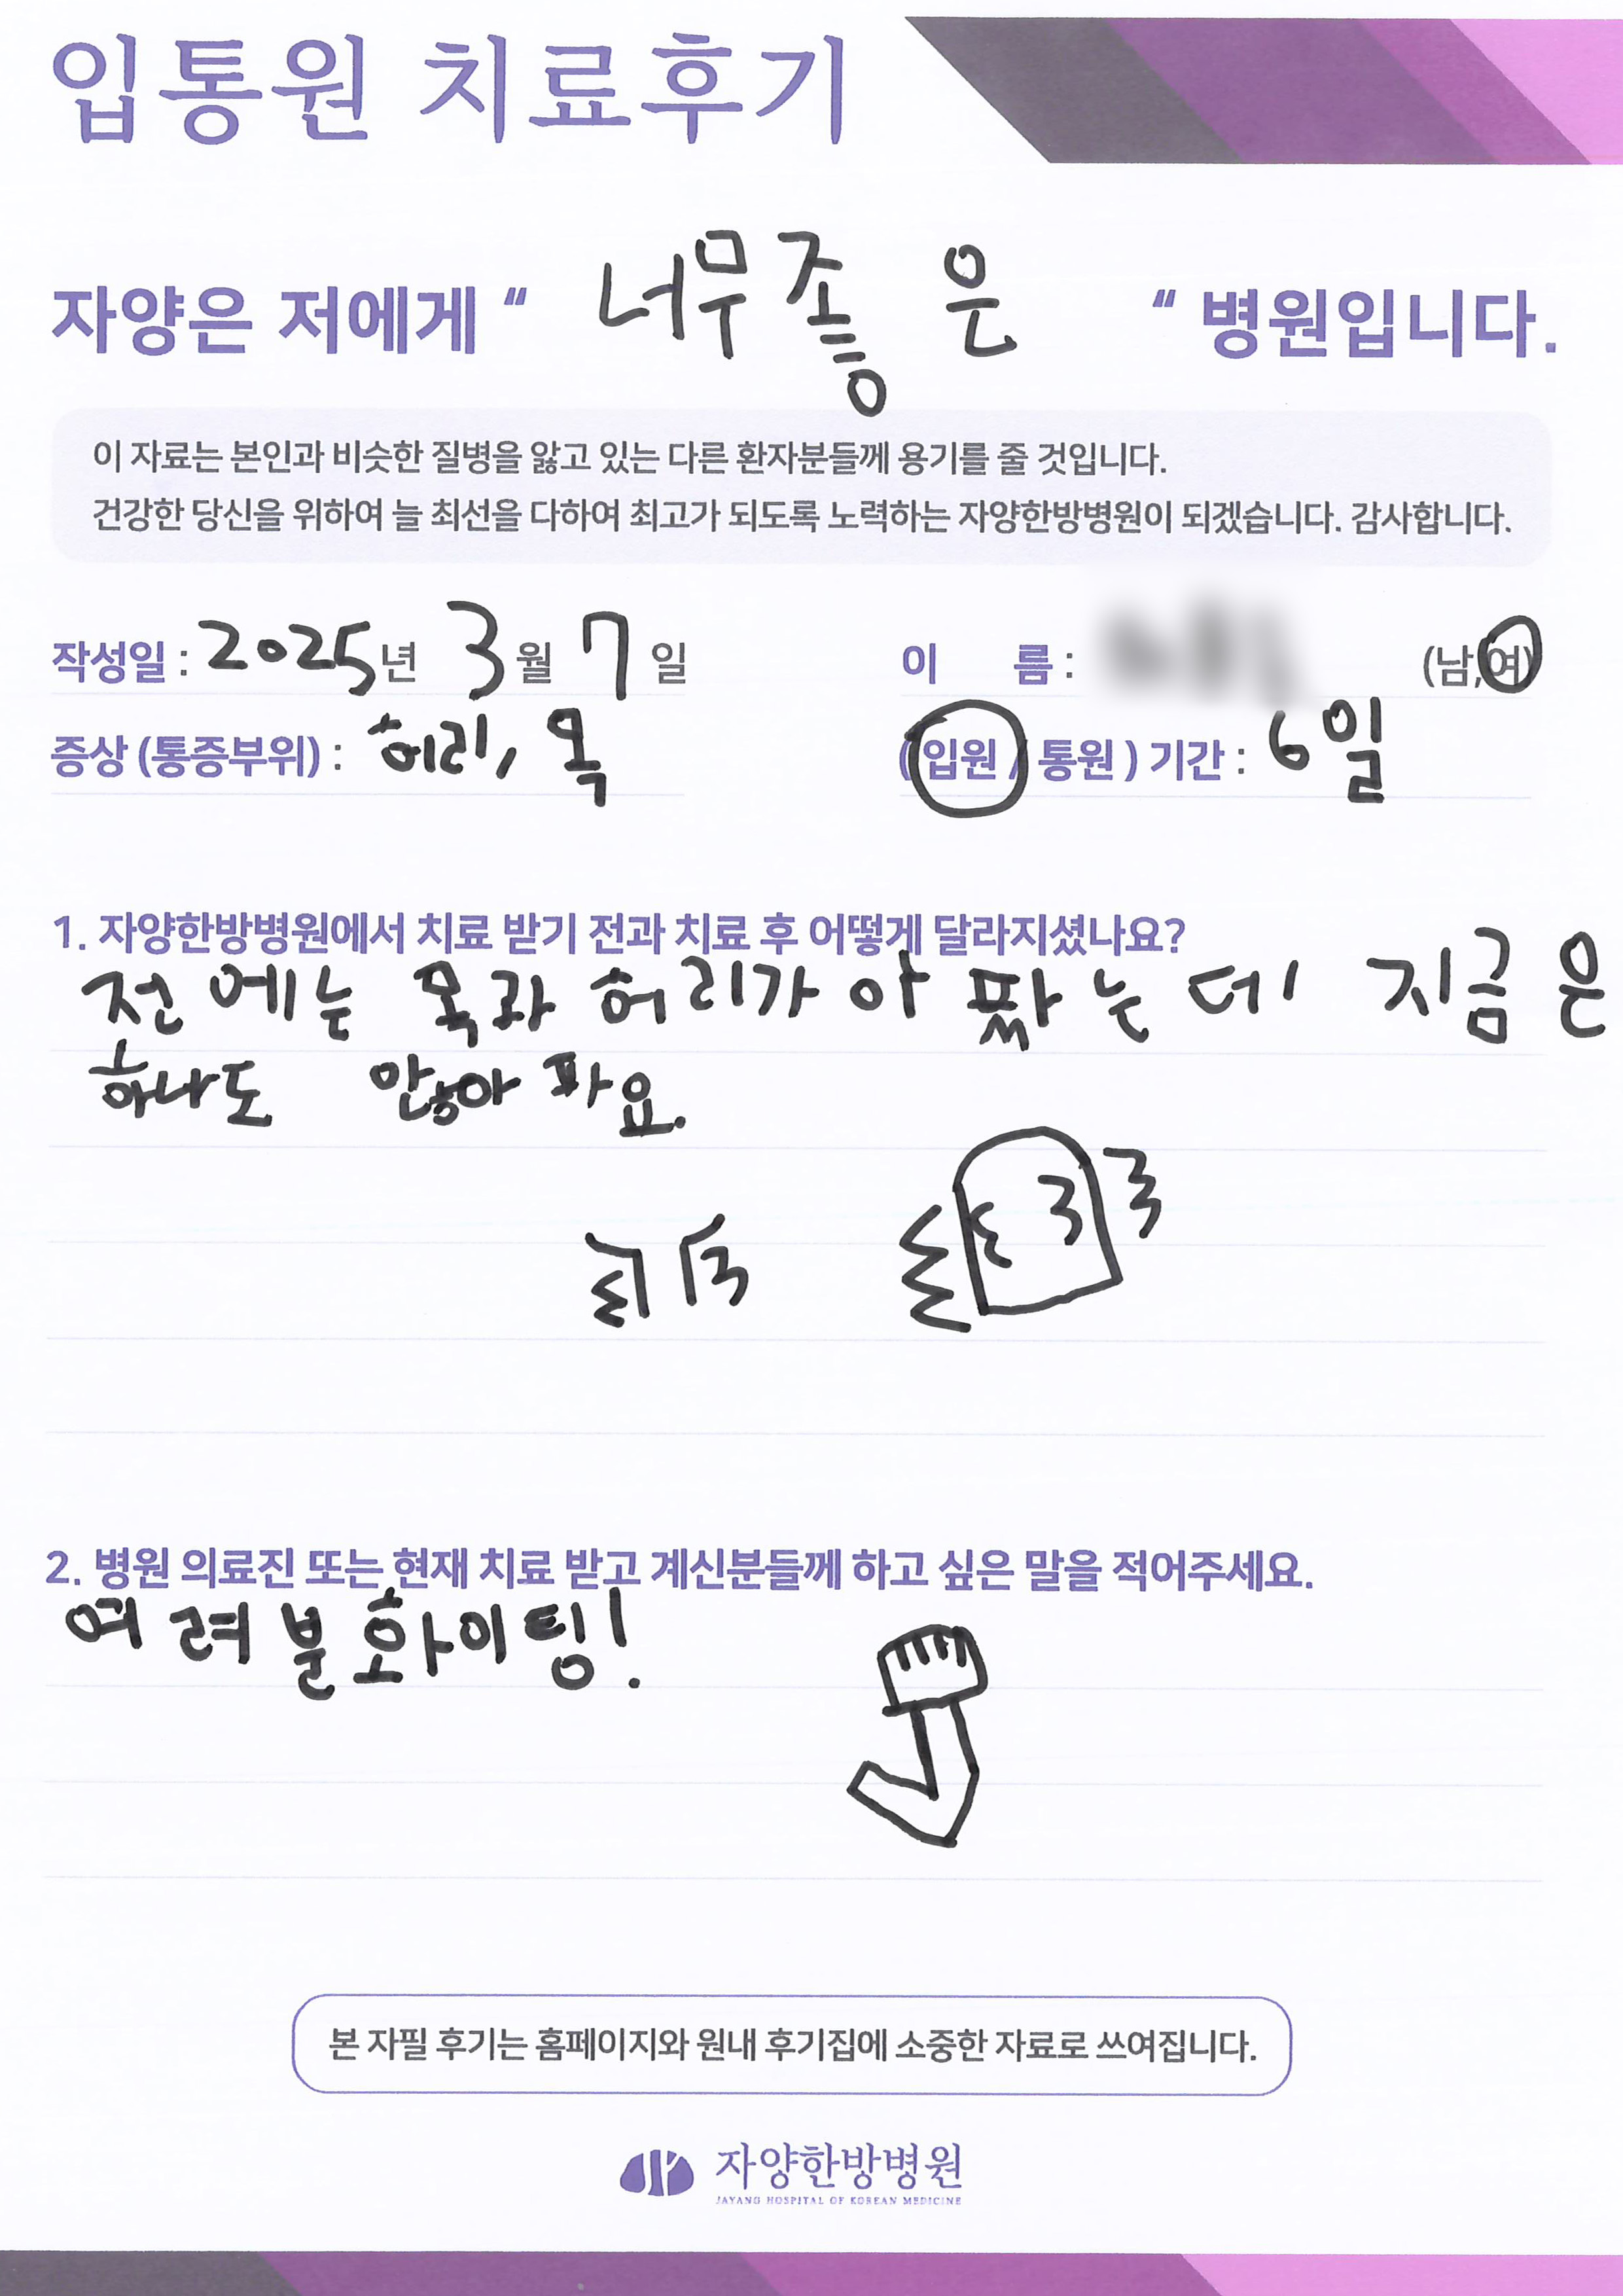 입통원 치료후기
자양은 저에게 “ 너무 좋은 “ 병원입니다.
이 자료는 본인과 비슷한 질병을 앓고 있는 다른 환자분들께 용기를 줄 것입니다.
건강한 당신을 위하여 늘 최선을 다하여 최고가 되도록 노력하는 자양한방병원이 되겠습니다. 감사합니다.
작성일 : 2025년 3월 7일 이 름 : (남,여)
증상 (통증부위) : 허리, 목 (입원 / 통원 ) 기간 : 6일
1. 자양한방병원에서 치료 받기 전과 치료 후 어떻게 달라지셨나요?
전에는 목과 허리가 아팠는데 지금은
하나도 않아파요.
2. 병원 의료진 또는 현재 치료 받고 계신분들께 하고 싶은 말을 적어주세요.
여려분 화이팅!
본 자필 후기는 홈페이지와 원내 후기집에 소중한 자료로 쓰여집니다.
자양한방병원
JAYANG HOSPITAL OF KOREAN MEDICINE